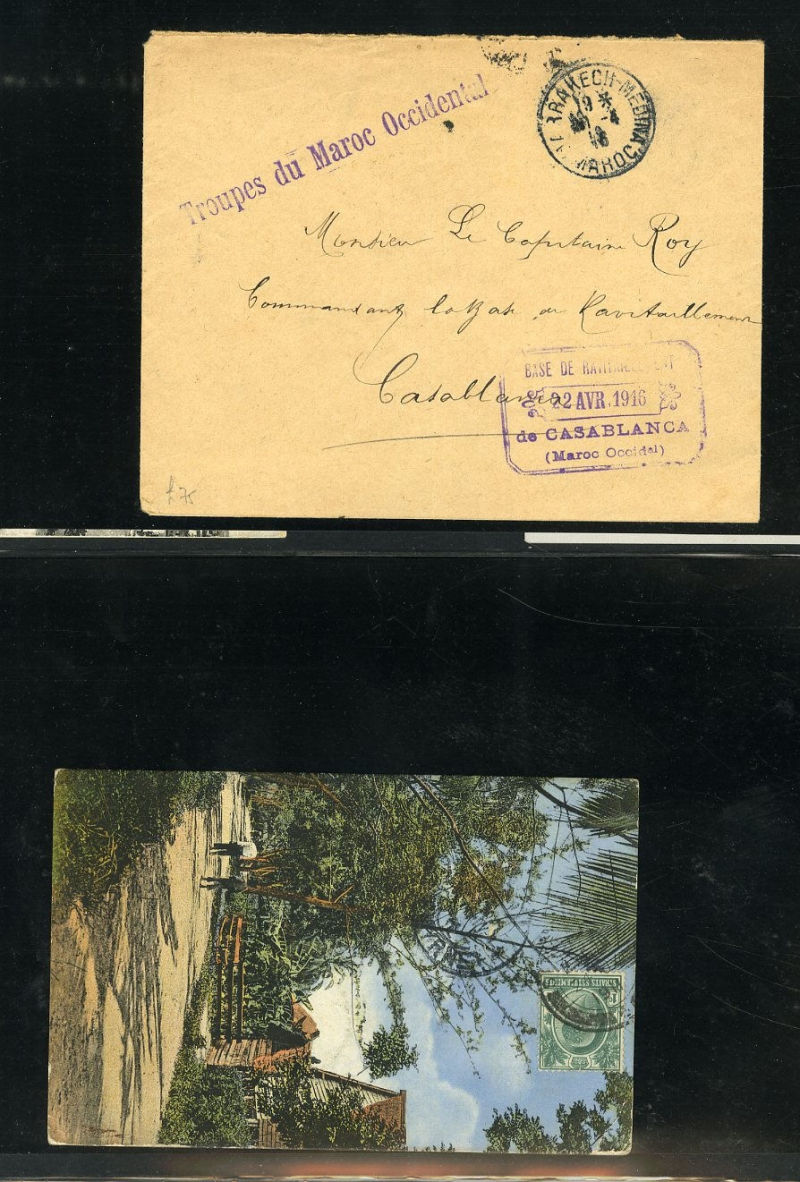 Troupes du Maroc Occidental
MARRAKECH-MEDINA
19 *
-4
16
MAROC
Monsieur Le Capitaine Roy
Commandant la Base de Ravitaillement
Casablanca
BASE DE RAVITAILLEMENT
22 AVR. 1916
de CASABLANCA
(Maroc Occidal)
£75
STRAITS SETTLEMENTS